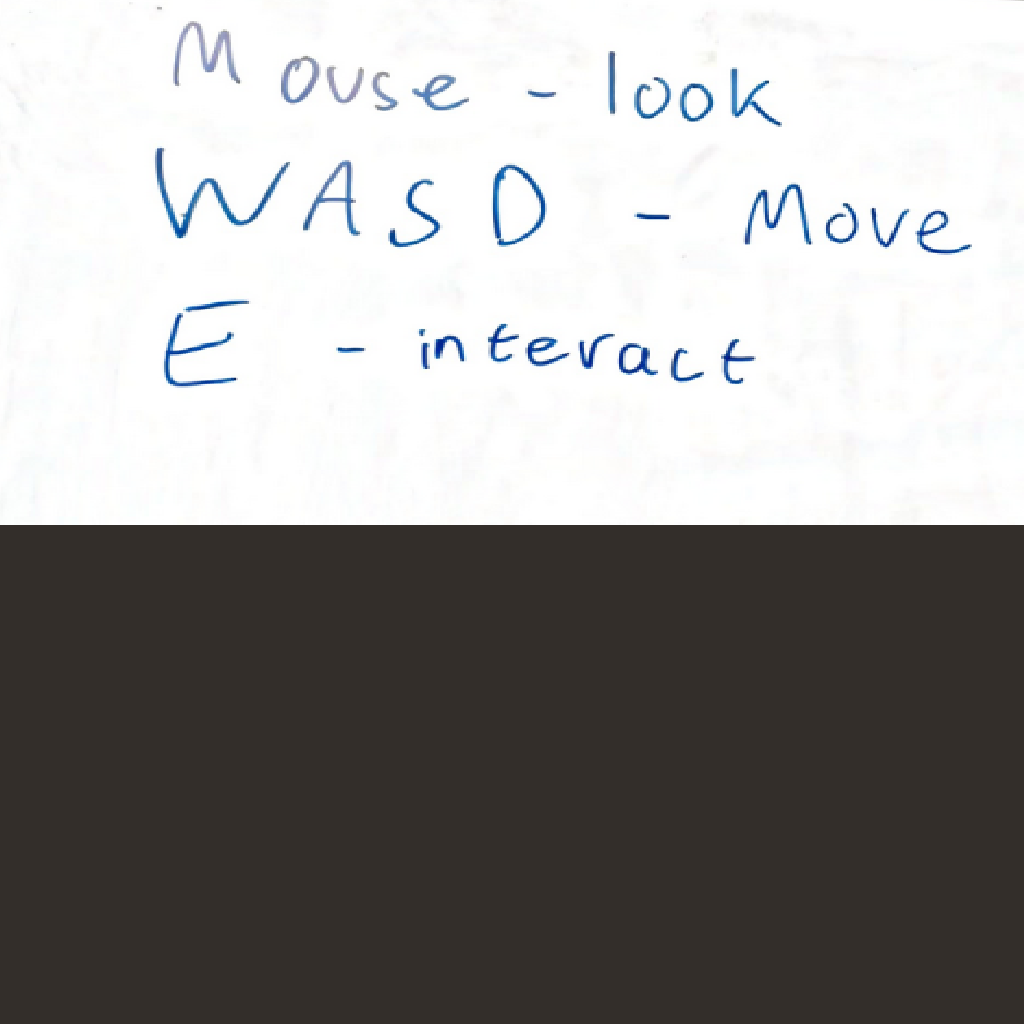 Mouse - look
WASD - Move
E - interact